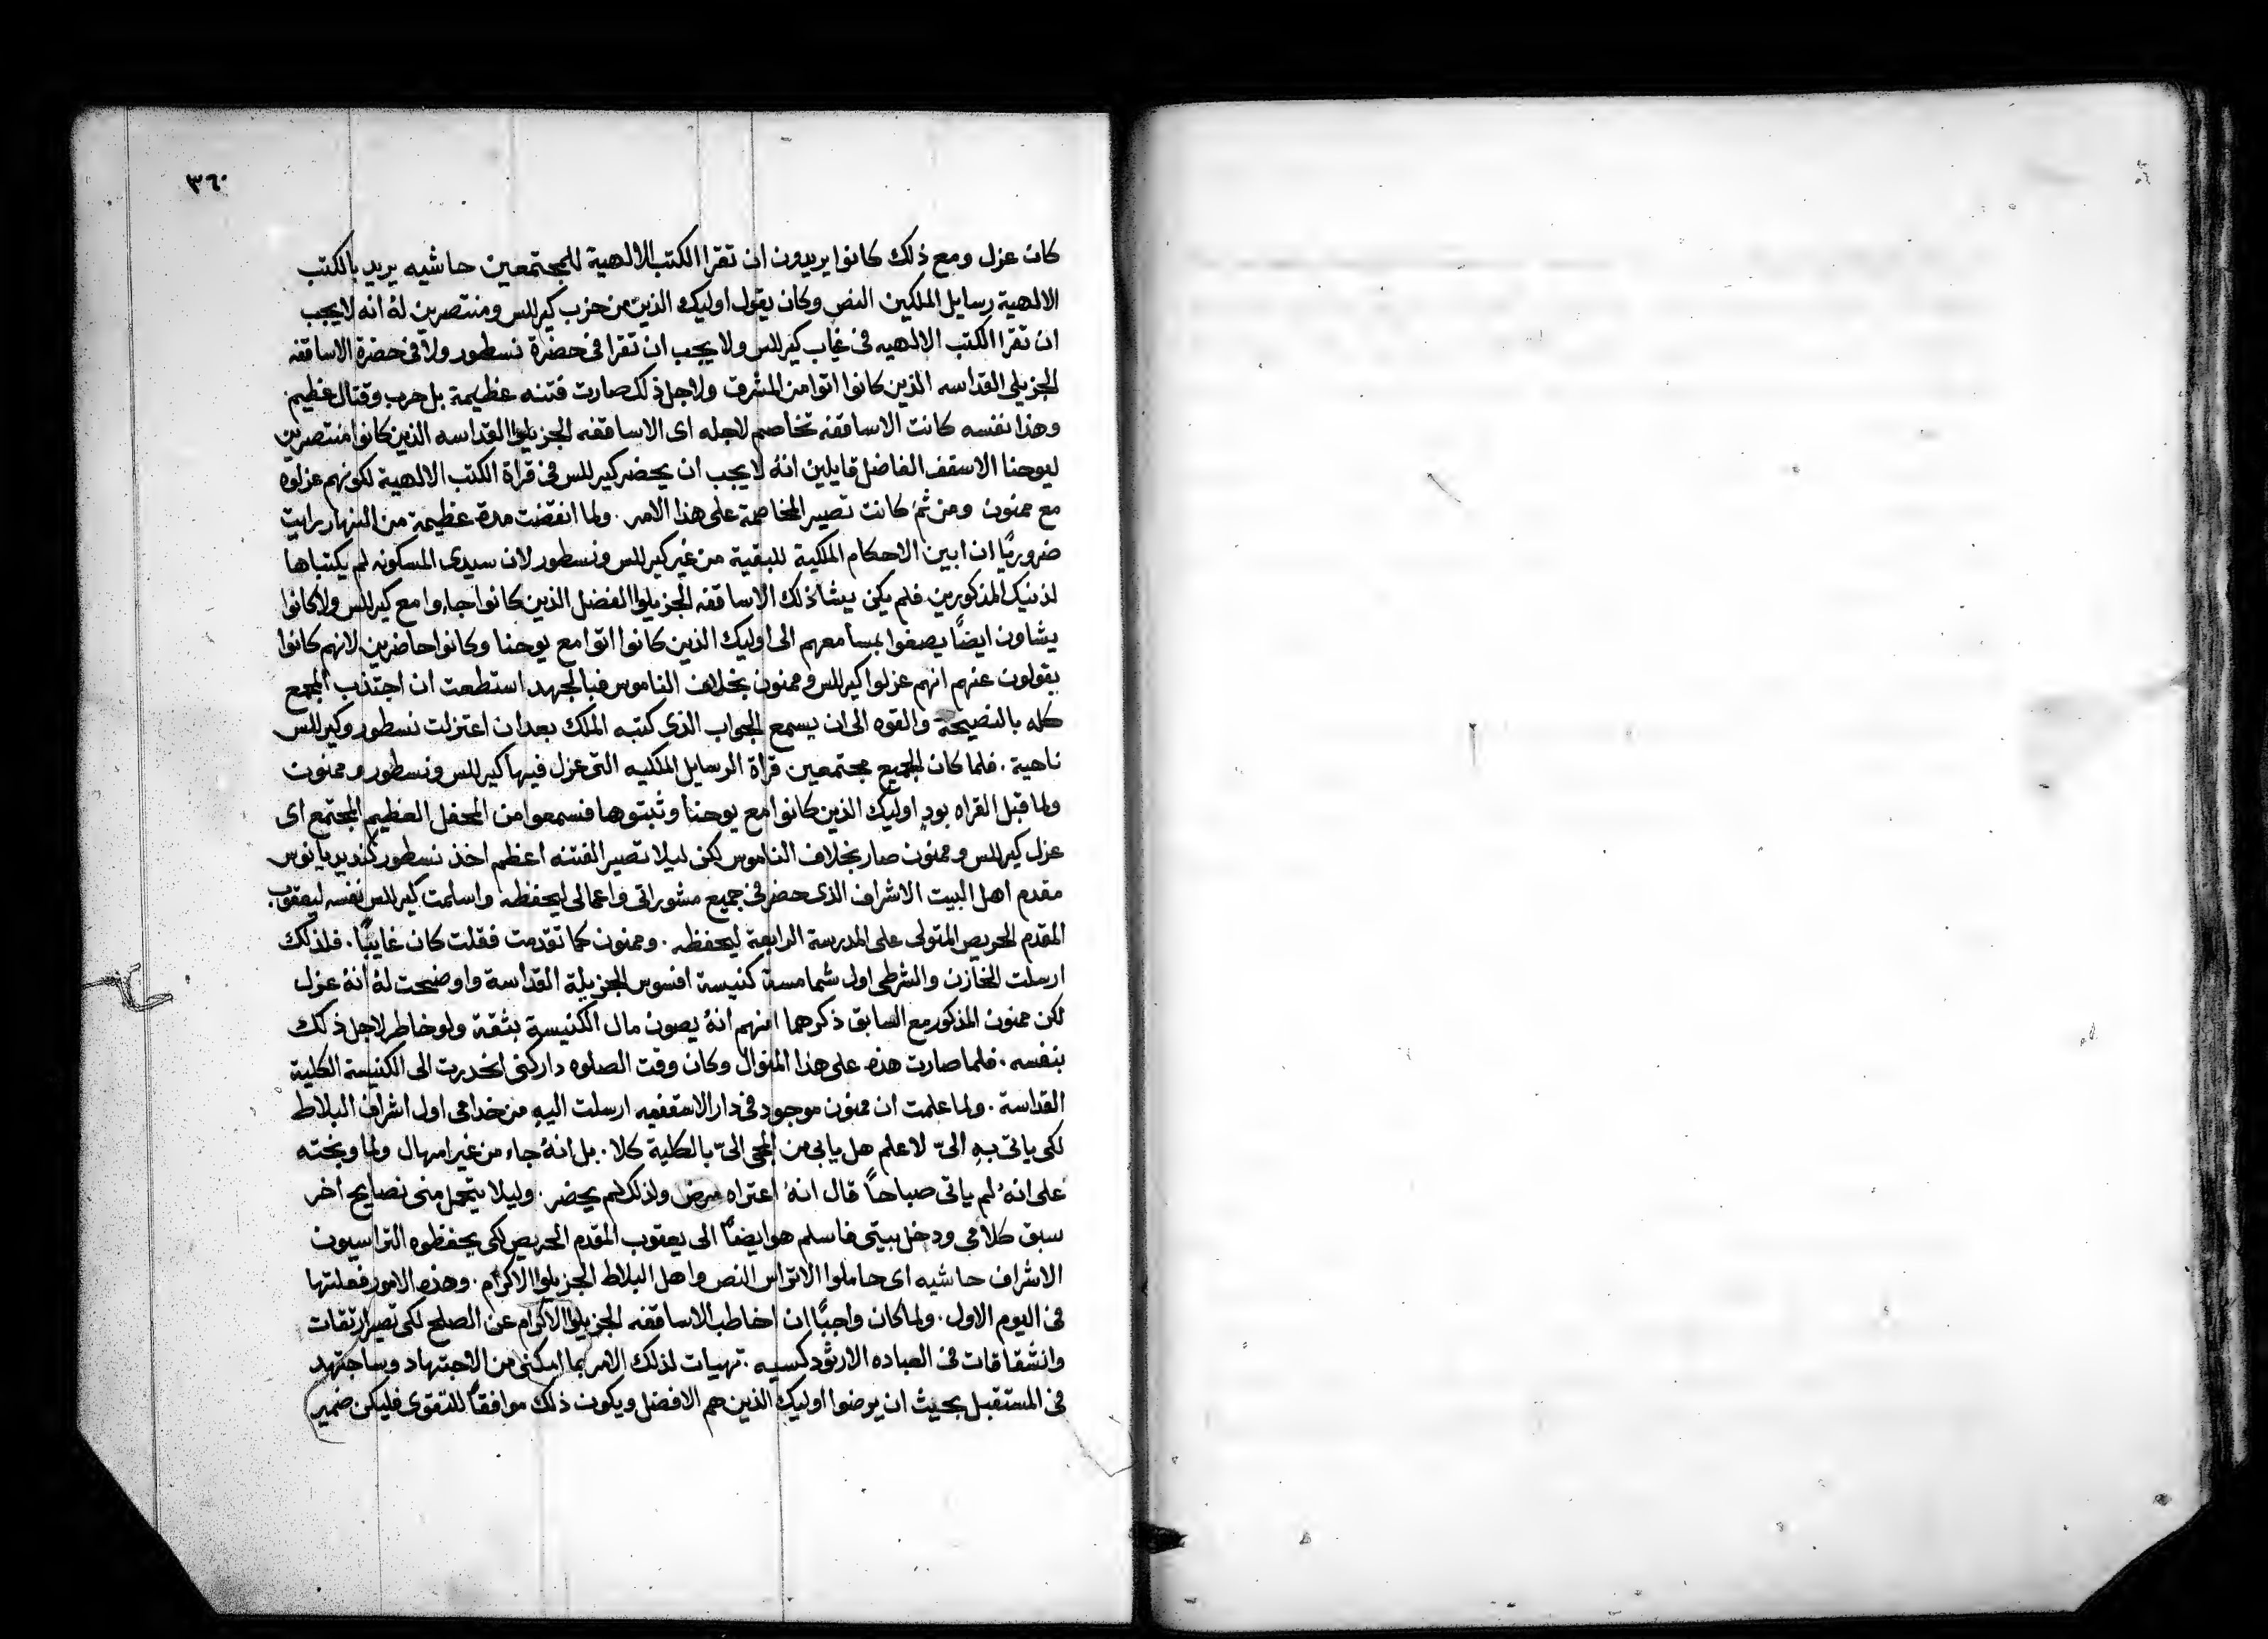 ٣٦٠
كان عزل ومع ذلك كانوا يريدون ان تقرا الكتب الالهية للمجتمعين حاشيه يريد بالكتب
الالهية رسايل الملكين النص وكان يقول اوليك الذين من حزب كيرللس ومنتصرين له انه لا يجب
ان تقرا الكتب الالهيه فى غياب كيرللس ولا يجب ان تقرا فى حضرة نسطور ولا فى حضرة الاساقفه
الجزيلى القداسه الذين كانوا اتوا من المشرق ولاجل ذلك صارت فتنه عظيمة بل حرب وقتال عظيم
وهذا نفسه كانت الاساقفه تخاصم لاجله اى الاساقفه الجزيلوا القداسه الذين كانوا منتصرين
ليوحنا الاسقف الفاضل قايلين انه لا يجب ان يحضر كيرللس فى قراة الكتب الالهية لكونهم عزلوه
مع ممنون ومن ثم كانت تصير المخاصمة على هذا الامر . ولما انقضت مدة عظيمة من النهار رايت
ضروريًا ان ابين الاحكام الملكية للبقية من غير كيرللس ونسطور لان سيدى المسكونه لم يكتباها
لذنيك المذكورين فلم يكن يشا ذلك الاساقفه الجزيلوا الفضل الذين كانوا جاءوا مع كيرللس ولا كانوا
يشاون ايضًا يصغوا بمسامعهم الى اوليك الذين كانوا اتوا مع يوحنا وكانوا حاضرين لانهم كانوا
يقولون عنهم انهم عزلوا كيرللس وممنون بخلاف الناموس فبالجهد استطعت ان اجتذب المجمع
كله بالنصيحة والقوه الى ان يسمع الجواب الذى كتبه الملك بعد ان اعتزلت نسطور وكيرللس
ناحية . فلما كان الجميع مجتمعين قراة الرسايل الملكيه التى عزل فيها كيرللس ونسطور وممنون
ولما قبل القراه بودٍ اوليك الذين كانوا مع يوحنا وثبتوها فسمعوا من المحفل العظيم المجتمع اى
عزل كيرللس وممنون صار بخلاف الناموس لكن ليلا تصير الفتنه اعظم اخذ نسطور كنديديانوس
مقدم اهل البيت الاشراف الذى حضر فى جميع مشوراتى واعمالى ليحفظه واسلمت كيرللس نفسه ليعقوب
المقدم الحريص المتولى على المدرسة الرابعة ليحفظه . وممنون كما تقدمت فقلت كان غايبًا . فلذلك
ارسلت الخازن والشرطى اول شمامسة كنيسة افسوس الجزيلة القداسة واوضحت له انه عزل
لكن ممنون المذكور مع السابق ذكرهما انهم انه يصون مال الكنيسة بثقة ولو خاطر لاجل ذلك
بنفسه . فلما صارت هذه على هذا المنوال وكان وقت الصلوه داركنى انحدرت الى الكنيسة الكلية
القداسة . ولما علمت ان ممنون موجود فى دار الاسقفيه ارسلت اليه من خدامى اول اشراف البلاط
لكى ياتى به الىّ لاعلم هل يابى من المجى الىّ بالكلية كلا . بل انه جاء من غير امهال ولما وبخته
على انه لم ياتى صباحًا قال انه اعتراه مرض ولذلك لم يحضر . وليلا يتحمل منى نصايح اخر
سبق كلامى ودخل بيتى فاسلم هو ايضًا الى يعقوب المقدم الحريص لكى يحفظوه التراسيون
الاشراف حاشيه اى حاملوا الاتراس النص واهل البلاط الجزيلوا الاكرام . وهذه الامور فعلتها
فى اليوم الاول . ولما كان واجبًا ان اخاطب الاساقفه الجزيلوا الاكرام عن الصلح لكى تصير ارتقات
وانشقاقات فى العباده الارثودكسيه . تهيات لذلك الامر بما امكننى من الاجتهاد وساجتهد
فى المستقبل بحيث ان يرضوا اوليك الذين هم الافضل ويكون ذلك موافقًا للتقوى فليكن ضمير